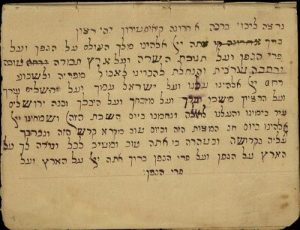 ברכה יהי רצון
ברוך אתה יי׳ אלהינו מלך העולם על הגפן ועל
הגפן ועל תנובת השדה ועל ארץ טובה
ורחבה שרצית והנחלת לאבותינו לאכול מפריה ולשבוע
רחם יי׳ אלהינו עלינו ועל ישראל עמך ועל ירושלים עירך
ועל הר ציון משכן ועל מזבחך ועל היכלך ובנה ירושלים
עיר בימינו והעלנו ונחמנו ביום השבת הזה) ושמחינו יי׳
אלהינו ביום חג המצות הזה וביום טוב מקרא קדש הזה ונברכך
עליה בקדושה ובטהרה כי אתה טוב ומטיב לכל ונודה לך על
הארץ על הגפן ועל פרי הגפן ברוך אתה יי׳ על הארץ ועל
פרי הגפן: